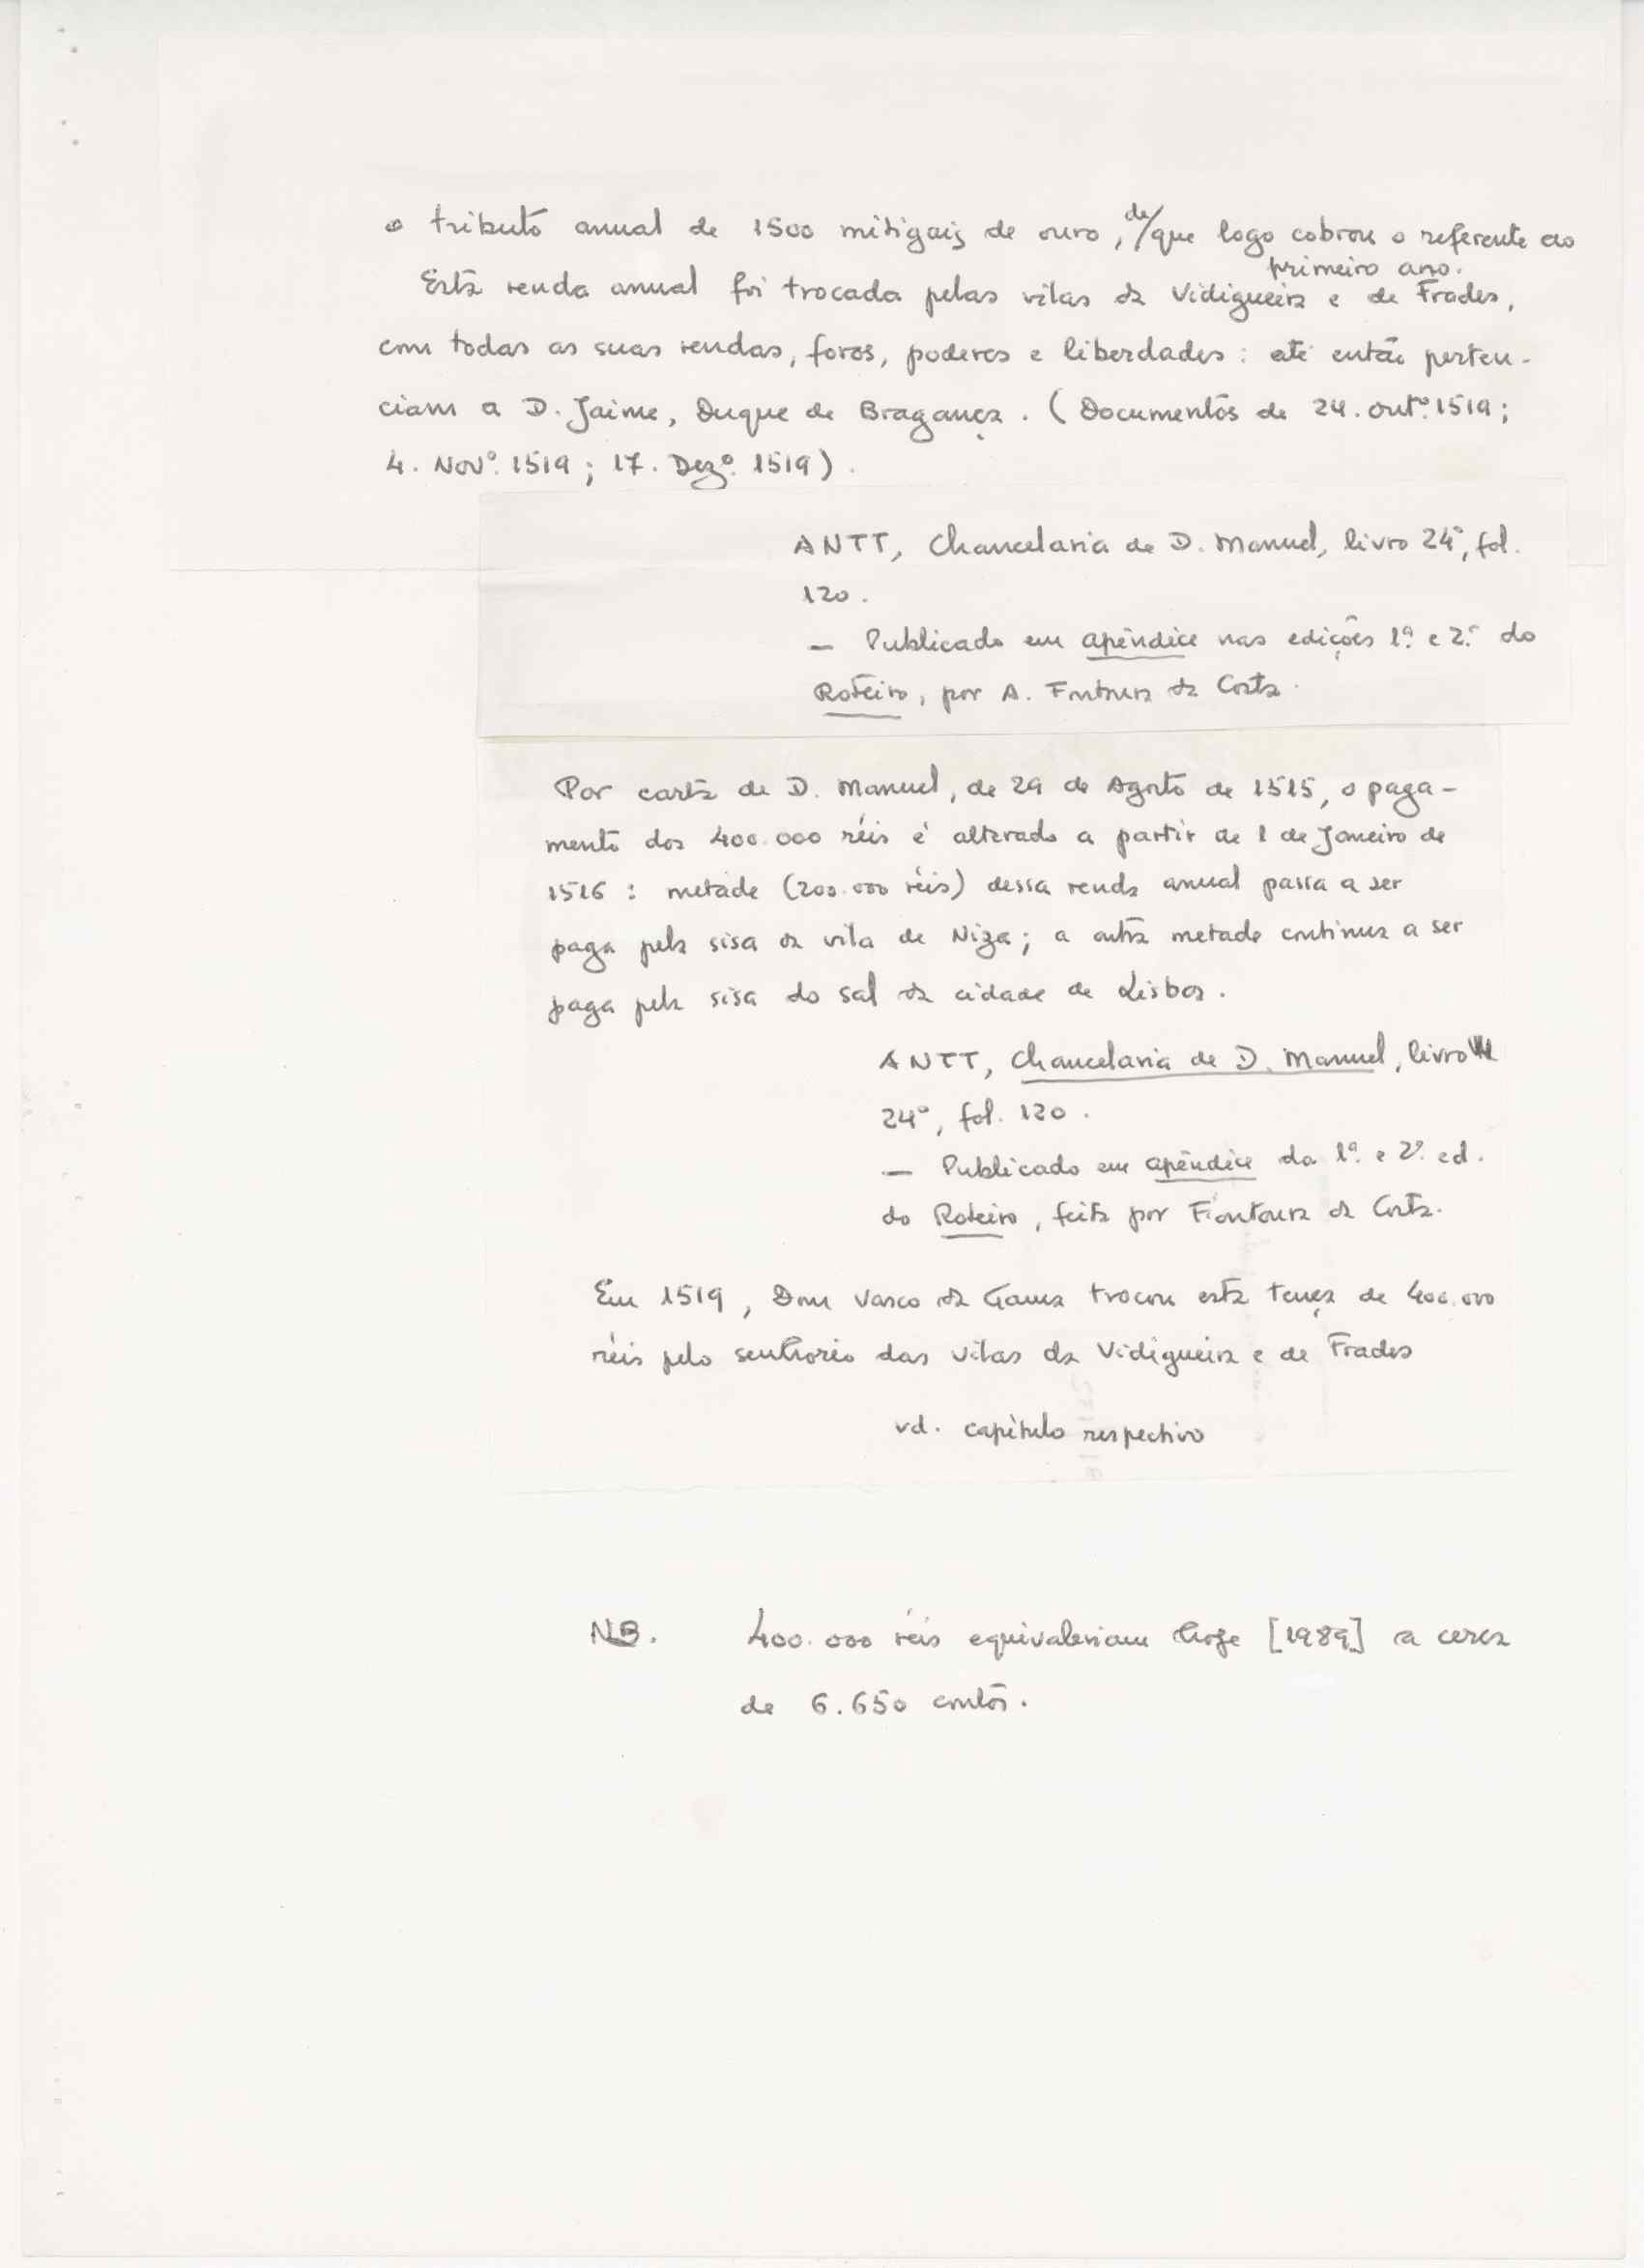 o tributo anual de 1500 mitigais de ouro, de/que logo cobrou o referente ao
primeiro ano.
Esta renda anual foi trocada pelas vilas da Vidigueira e de Frades,
com todas as suas rendas, foros, poderes e liberdades: até então perten-
ciam a D. Jaime, Duque de Bragança. (Documentos de 24. outº. 1519;
4. Novº. 1519; 17. Dezº. 1519).
ANTT, Chancelaria de D. Manuel, livro 24º, fol.
120.
— Publicado em apêndice nas edições 1ª. e 2ª. do
Roteiro, por A. Fontoura da Costa.
Por carta de D. Manuel, de 29 de Agosto de 1515, o paga-
mento dos 400.000 réis é alterado a partir de 1 de Janeiro de
1516: metade (200.000 réis) dessa renda anual passa a ser
paga pela sisa da vila de Niza; a outra metade continua a ser
paga pela sisa do sal da cidade de Lisboa.
ANTT, Chancelaria de D. Manuel, livro
24º, fol. 120.
— Publicado em apêndice da 1ª. e 2ª. ed.
do Roteiro, feita por Fontoura da Costa.
Em 1519, Dom Vasco da Gama trocou esta tença de 400.000
réis pelo senhorio das vilas da Vidigueira e de Frades
vd. capítulo respectivo
NB. 400.000 réis equivaleriam hoje [1989] a cerca
de 6.650 contos.